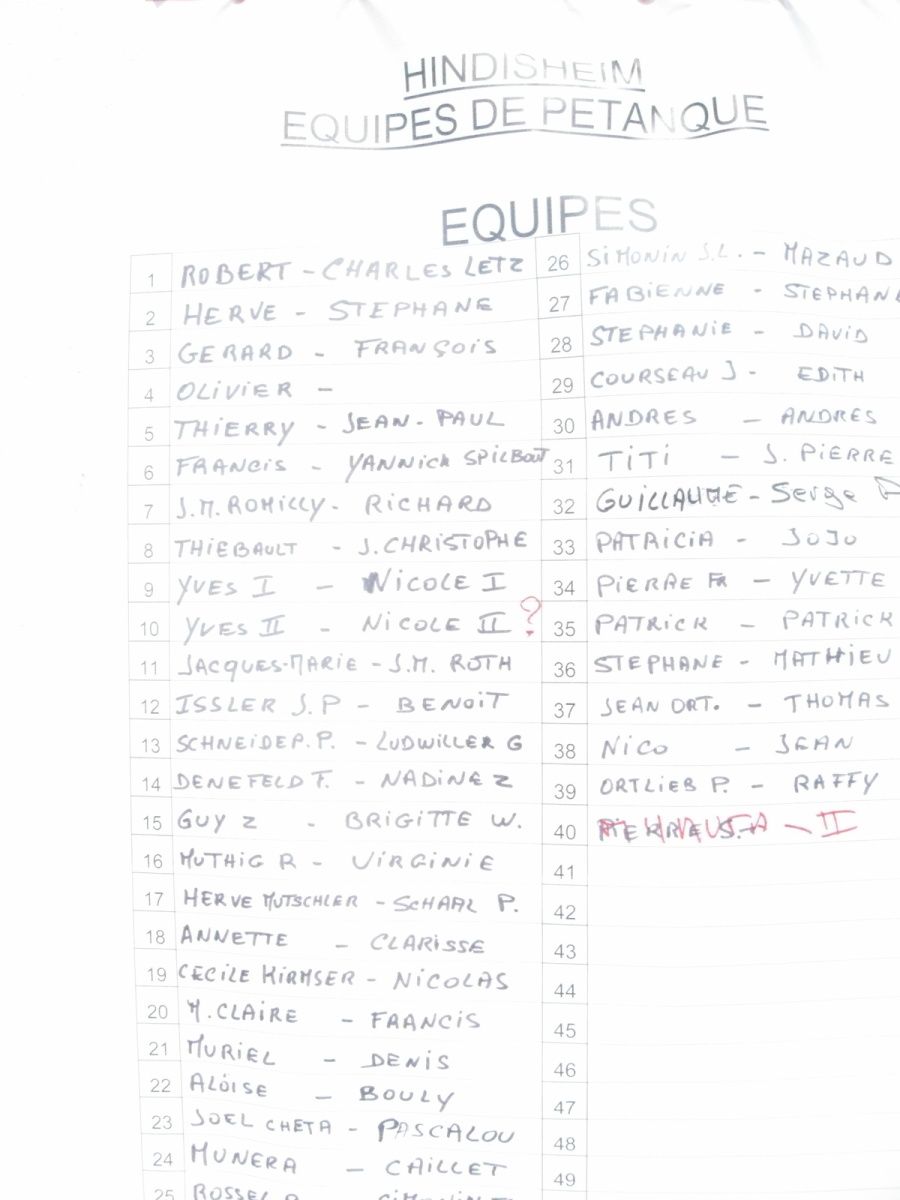 HINDISHEIM
EQUIPES DE PETANQUE
EQUIPES
1 ROBERT - CHARLES LETZ
2 HERVE - STEPHANE
3 GERARD - FRANÇOIS
4 OLIVIER -
5 THIERRY - JEAN-PAUL
6 FRANCIS - YANNICK SPILBOUT
7 J.M. ROMILLY - RICHARD
8 THIEBAULT - J.CHRISTOPHE
9 YVES I - NICOLE I
10 YVES II - NICOLE II ?
11 JACQUES-MARIE - J.M. ROTH
12 ISSLER J.P - BENOIT
13 SCHNEIDER.P. - LUDWILLER G
14 DENEFELD T. - NADINE Z
15 GUY Z - BRIGITTE W.
16 MUTHIG R - VIRGINIE
17 HERVE MUTSCHLER - SCHAAL P.
18 ANNETTE - CLARISSE
19 CECILE KIRMSER - NICOLAS
20 M.CLAIRE - FRANCIS
21 MURIEL - DENIS
22 ALOISE - BOULY
23 JOEL CHETA - PASCALOU
24 MUNERA - CAILLET
25 ROSSEL
26 SIMONIN J.L. - MAZAUD
27 FABIENNE - STEPHAN
28 STEPHANIE - DAVID
29 COURSEAU J - EDITH
30 ANDRES - ANDRES
31 TITI - J. PIERRE
32 GUILLAUME - Serge
33 PATRICIA - JOJO
34 PIERRE FR - YVETTE
35 PATRICK - PATRICK
36 STEPHANE - MATHIEU
37 JEAN ORT. - THOMAS
38 NICO - JEAN
39 ORTLIEB P. - RAFFY
40 - II
41
42
43
44
45
46
47
48
49